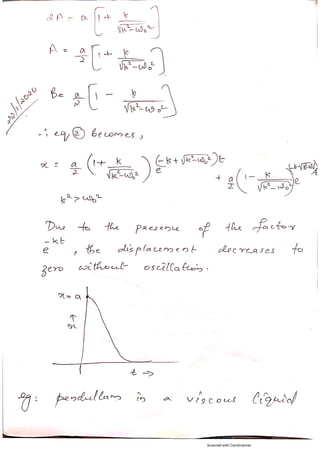 2A = a [1 + k/√k²-ω₀²]
A = a/2 [1 + k/√k²-ω₀²]
B = a/2 [1 - k/√k²-ω₀²]
20/1/2020
∴ eq ② becomes,
x = a/2 (1 + k/√k²-ω₀²) e^(-k+√k²-ω₀²)t
+ a/2 (1 - k/√k²-ω₀²) e
k² > ω₀²
Due to the presence of the factor
e^-kt, the displacement decreases to
zero without oscillation.
x=a
↑
x
t →
eg: pendullum in a viscous liquid
Scanned with CamScanner